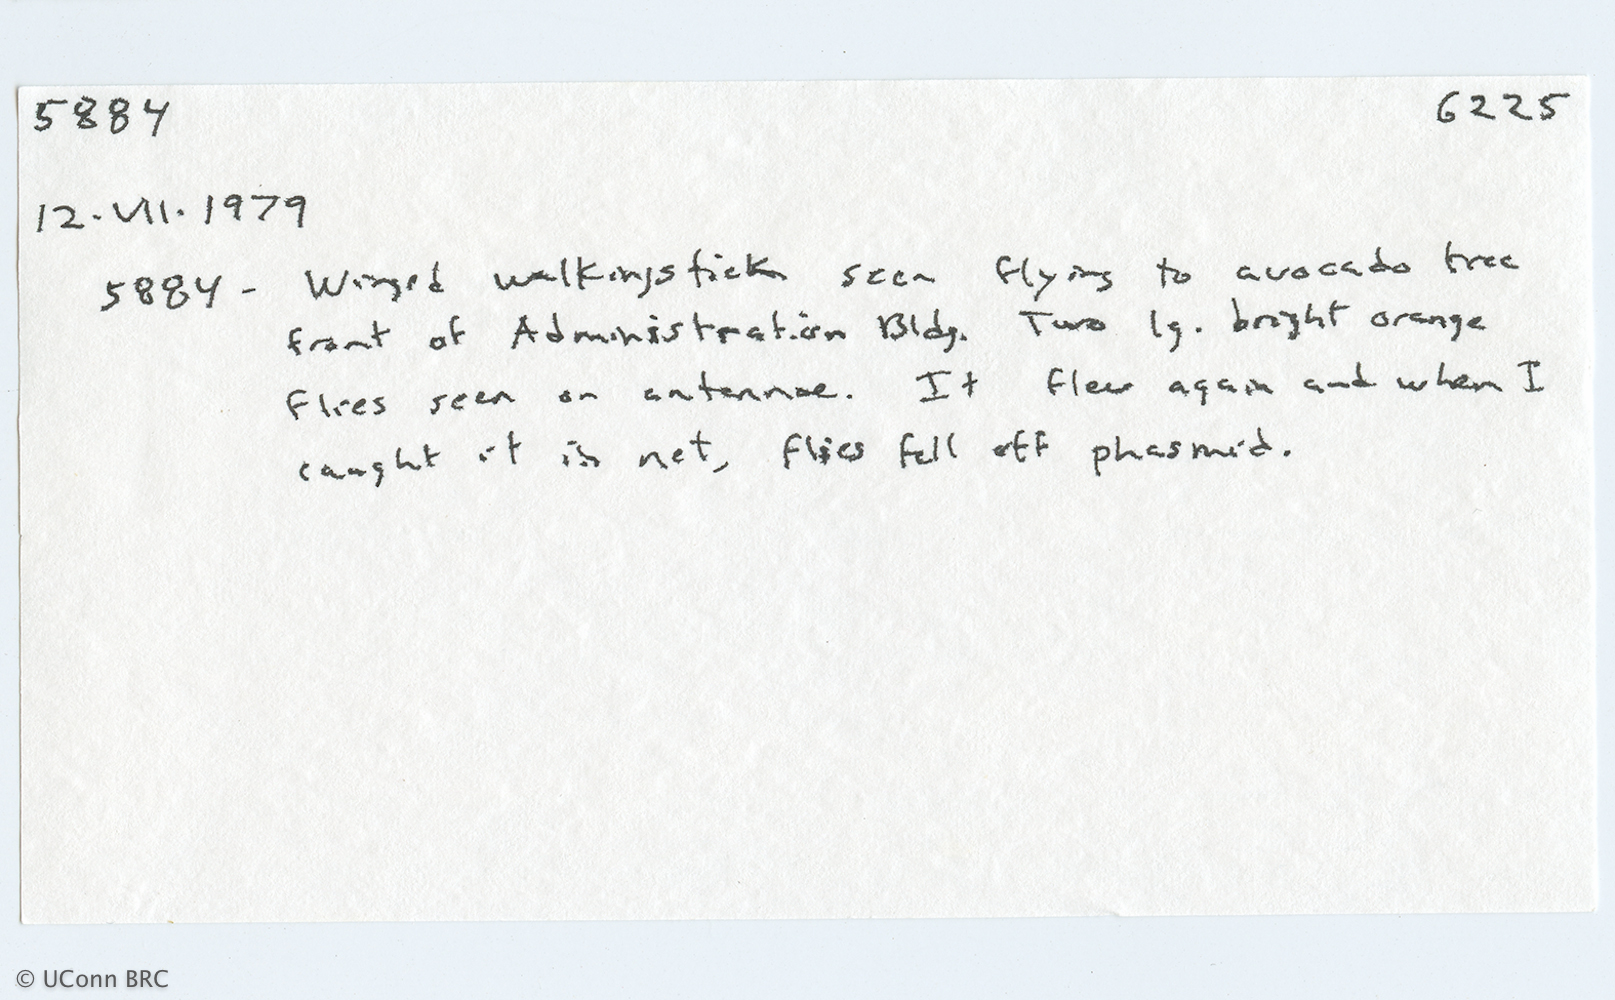 5884 6225
12.VII.1979
5884 - Winged walkingstick seen flying to avocado tree
front of Administration Bldg. Two lg. bright orange
flies seen on antennae. It flew again and when I
caught it in net, flies fell off phasmid.
© UConn BRC